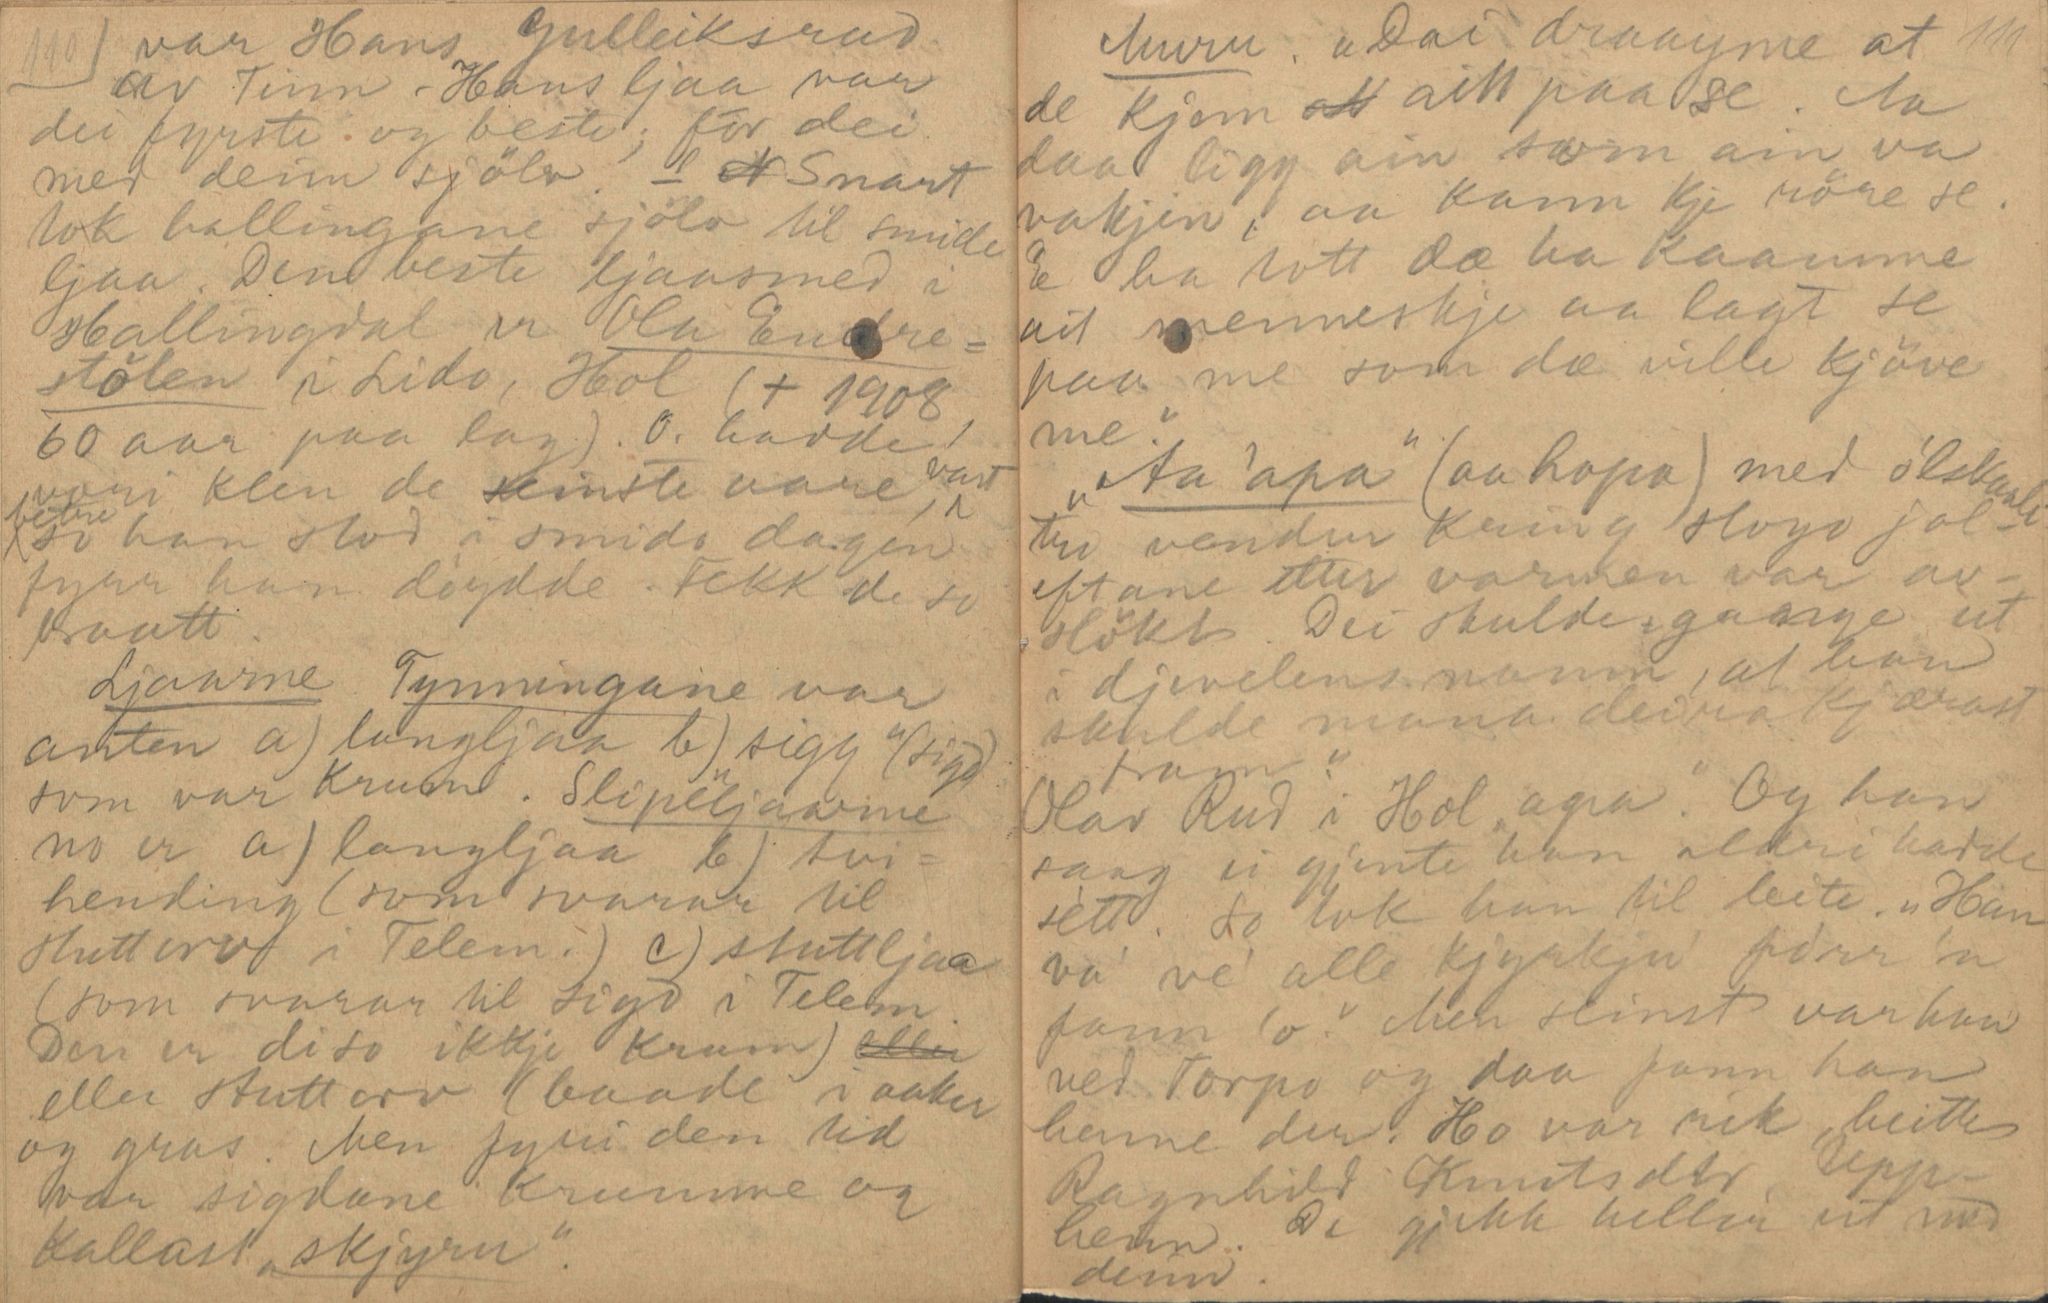 110) var Hans Gulleiksrud
av Tinn. Hans ljaa var
dei fyrste og beste, för dei
med deim sjölv. Snart
tok hallingane sjölv til smide
ljaa. Den beste ljaasmed i
Hallingdal er Ola Endre=
stölen i Lido, Hol († 1908
60 aar paa lag). O. hadde
vori klen de seinste aare, vart
betre
so han stod i smido dagen
fyrr han döydde. Fekk de so
braatt.
Ljaarne Tynningane var
anten a) langljaa b) sigg" (sigd)
som var krum. Slipeljaarne
no er a) langljaa b) tvi=
hending (som svarar til
stuttorv i Telem.) c) stuttljaa
(som svarar til sigd i Telem.
Den er diso ikkje krum) eller
eller stuttorv (baade i aaker
og gras. Men fyri den tid
var sigdane krumme og
kallast "skjyru".
111
Muru. "Dai draayme at
de kjem aitt paa se. Aa
daa ligg ain som ain va
vakjin, aa kann kje röre se.
E ha tott dæ ha kaamme
ait menneskje aa lagt se
paa me som dæ ville kjöve
me."
"Aa 'apa" (aa hopa) med ölskaali
tri vendur kring stogo jol-
eftane etter varmen var av-
slökt. Dei skulde gaange ut
i djevelens namn, at han
skulde mana deira kjærast
fram"
Olav Rud i Hol "apa". Og han
saag ei gjente han aldri hadde
sett. So tok han til leite. "Han
va' ve' alle kjyrkju' förr 'n
fann 'o." Men seinst var han
ved Torpo og daa fann han
henne der. Ho var rik, heitte
Ragnhild Knutsdtr. Upp-
heim. De gjekk heller ut med
deim.